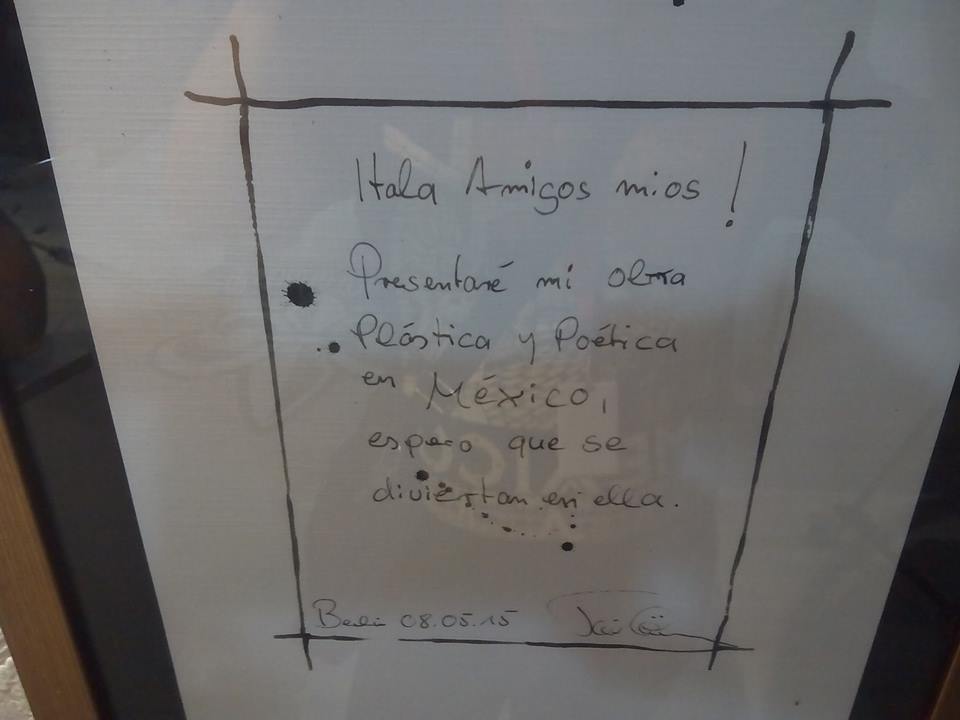 Hala Amigos mios !
Presentaré mi obra
Plástica y Poética
en México,
espero que se
diviértan en ella.
Berlin 08.05.15